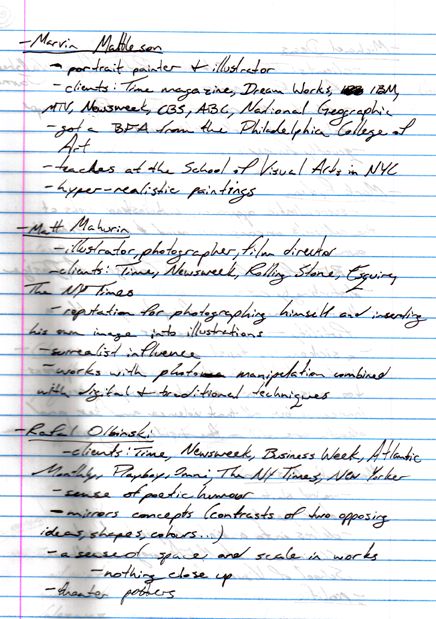 - Marvin Mattleson
- portrait painter & illustrator
- clients: Time magazine, Dream Works, IBM,
MTV, Newsweek, CBS, ABC, National Geographic
- got a BFA from the Philadelphia College of
Art
- teaches at the School of Visual Arts in NYC
- hyper-realistic paintings
- Matt Mahurin
- illustrator, photographer, film director
- clients: Time, Newsweek, Rolling Stone, Esquire,
The NY Times
- reputation for photographing himself and inserting
his own image into illustrations
- surrealist influence
- works with photo manipulation combined
with digital & traditional techniques
- Rafal Olbinski
- clients: Time, Newsweek, Business Week, Atlantic
Monthly, Playboy, Omni, The NY Times, New Yorker
- sense of poetic humour
- mirrors concepts (contrasts of two opposing
ideas, shapes, colours...)
- a sense of space and scale in works
- nothing close up
- theater posters